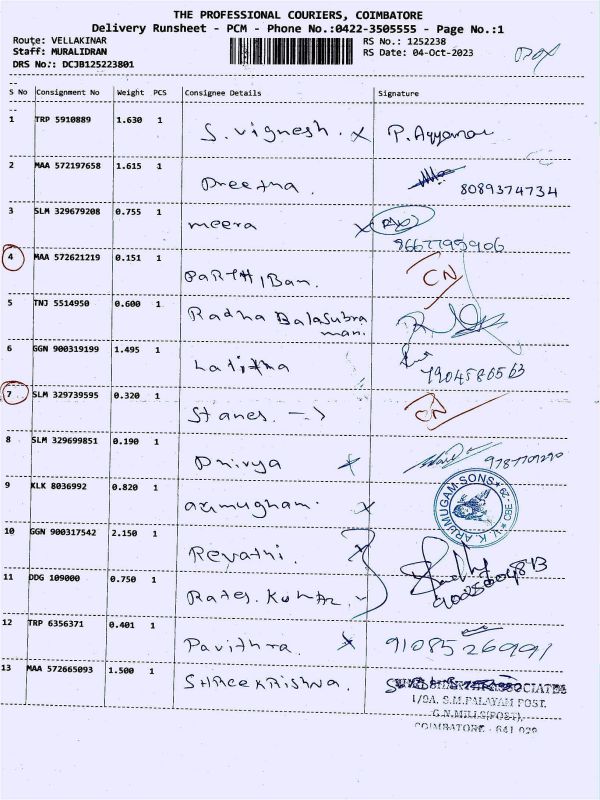 THE PROFESSIONAL COURIERS, COIMBATORE
Delivery Runsheet - PCM - Phone No.:0422-3505555 - Page No.:1
Route: VELLAKINAR RS No.: 1252238
Staff: MURALIDRAN RS Date: 04-Oct-2023
DRS No.: DCJB125223801
S No Consignment No Weight PCS Consignee Details Signature
1 TRP 5910889 1.630 1 S. Vignesh. x P. Ayyanar
2 MAA 572197658 1.615 1 Preetha. 8089374734
3 SLM 329679208 0.755 1 meera x
4 MAA 572621219 0.151 1 PARTHIBan. CN
5 TNJ 5514950 0.600 1 Radha Balasubra
man.
6 GGN 900319199 1.495 1 Lalitha
7 SLM 329739595 0.320 1 Stanes. -> CN
8 SLM 329699851 0.190 1 Dhivya x
9 KLK 8036992 0.820 1 arumugham x
V. K. ARUMUGAM SONS CBE-29
10 GGN 900317542 2.150 1 Revathi. x
11 DDG 109000 0.750 1
12 TRP 6356371 0.401 1 Pavithra. x 9108526991
13 MAA 572665093 1.500 1 SHREEKRISHNA.
1/9A, S.M.PALAYAM POST,
G.N.MILLS(POST),
COIMBATORE - 641 029